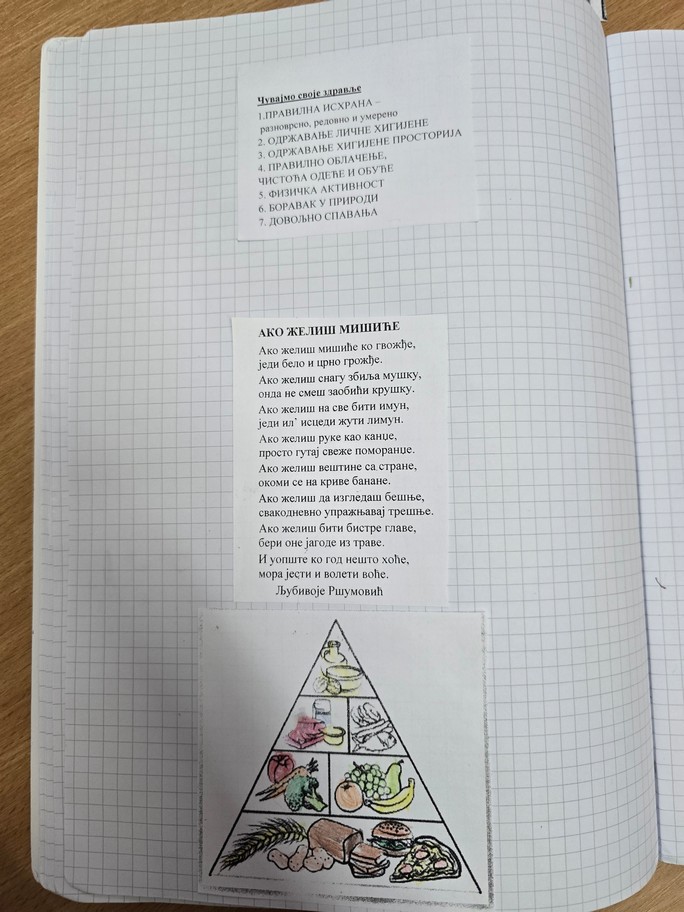 Чувајмо своје здравље
1.ПРАВИЛНА ИСХРАНА –
разноврсно, редовно и умерено
2. ОДРЖАВАЊЕ ЛИЧНЕ ХИГИЈЕНЕ
3. ОДРЖАВАЊЕ ХИГИЈЕНЕ ПРОСТОРИЈА
4. ПРАВИЛНО ОБЛАЧЕЊЕ,
ЧИСТОЋА ОДЕЋЕ И ОБУЋЕ
5. ФИЗИЧКА АКТИВНОСТ
6. БОРАВАК У ПРИРОДИ
7. ДОВОЉНО СПАВАЊА
АКО ЖЕЛИШ МИШИЋЕ
Ако желиш мишиће ко гвожђе,
једи бело и црно грожђе.
Ако желиш снагу збиља мушку,
онда не смеш заобићи крушку.
Ако желиш на све бити имун,
једи ил` исцеди жути лимун.
Ако желиш руке као канџе,
просто гутај свеже поморанџе.
Ако желиш вештине са стране,
окоми се на криве банане.
Ако желиш да изгледаш бешње,
свакодневно упражњавај трешње.
Ако желиш бити бистре главе,
бери оне јагоде из траве.
И уопште ко год нешто хоће,
мора јести и волети воће.
Љубивоје Ршумовић